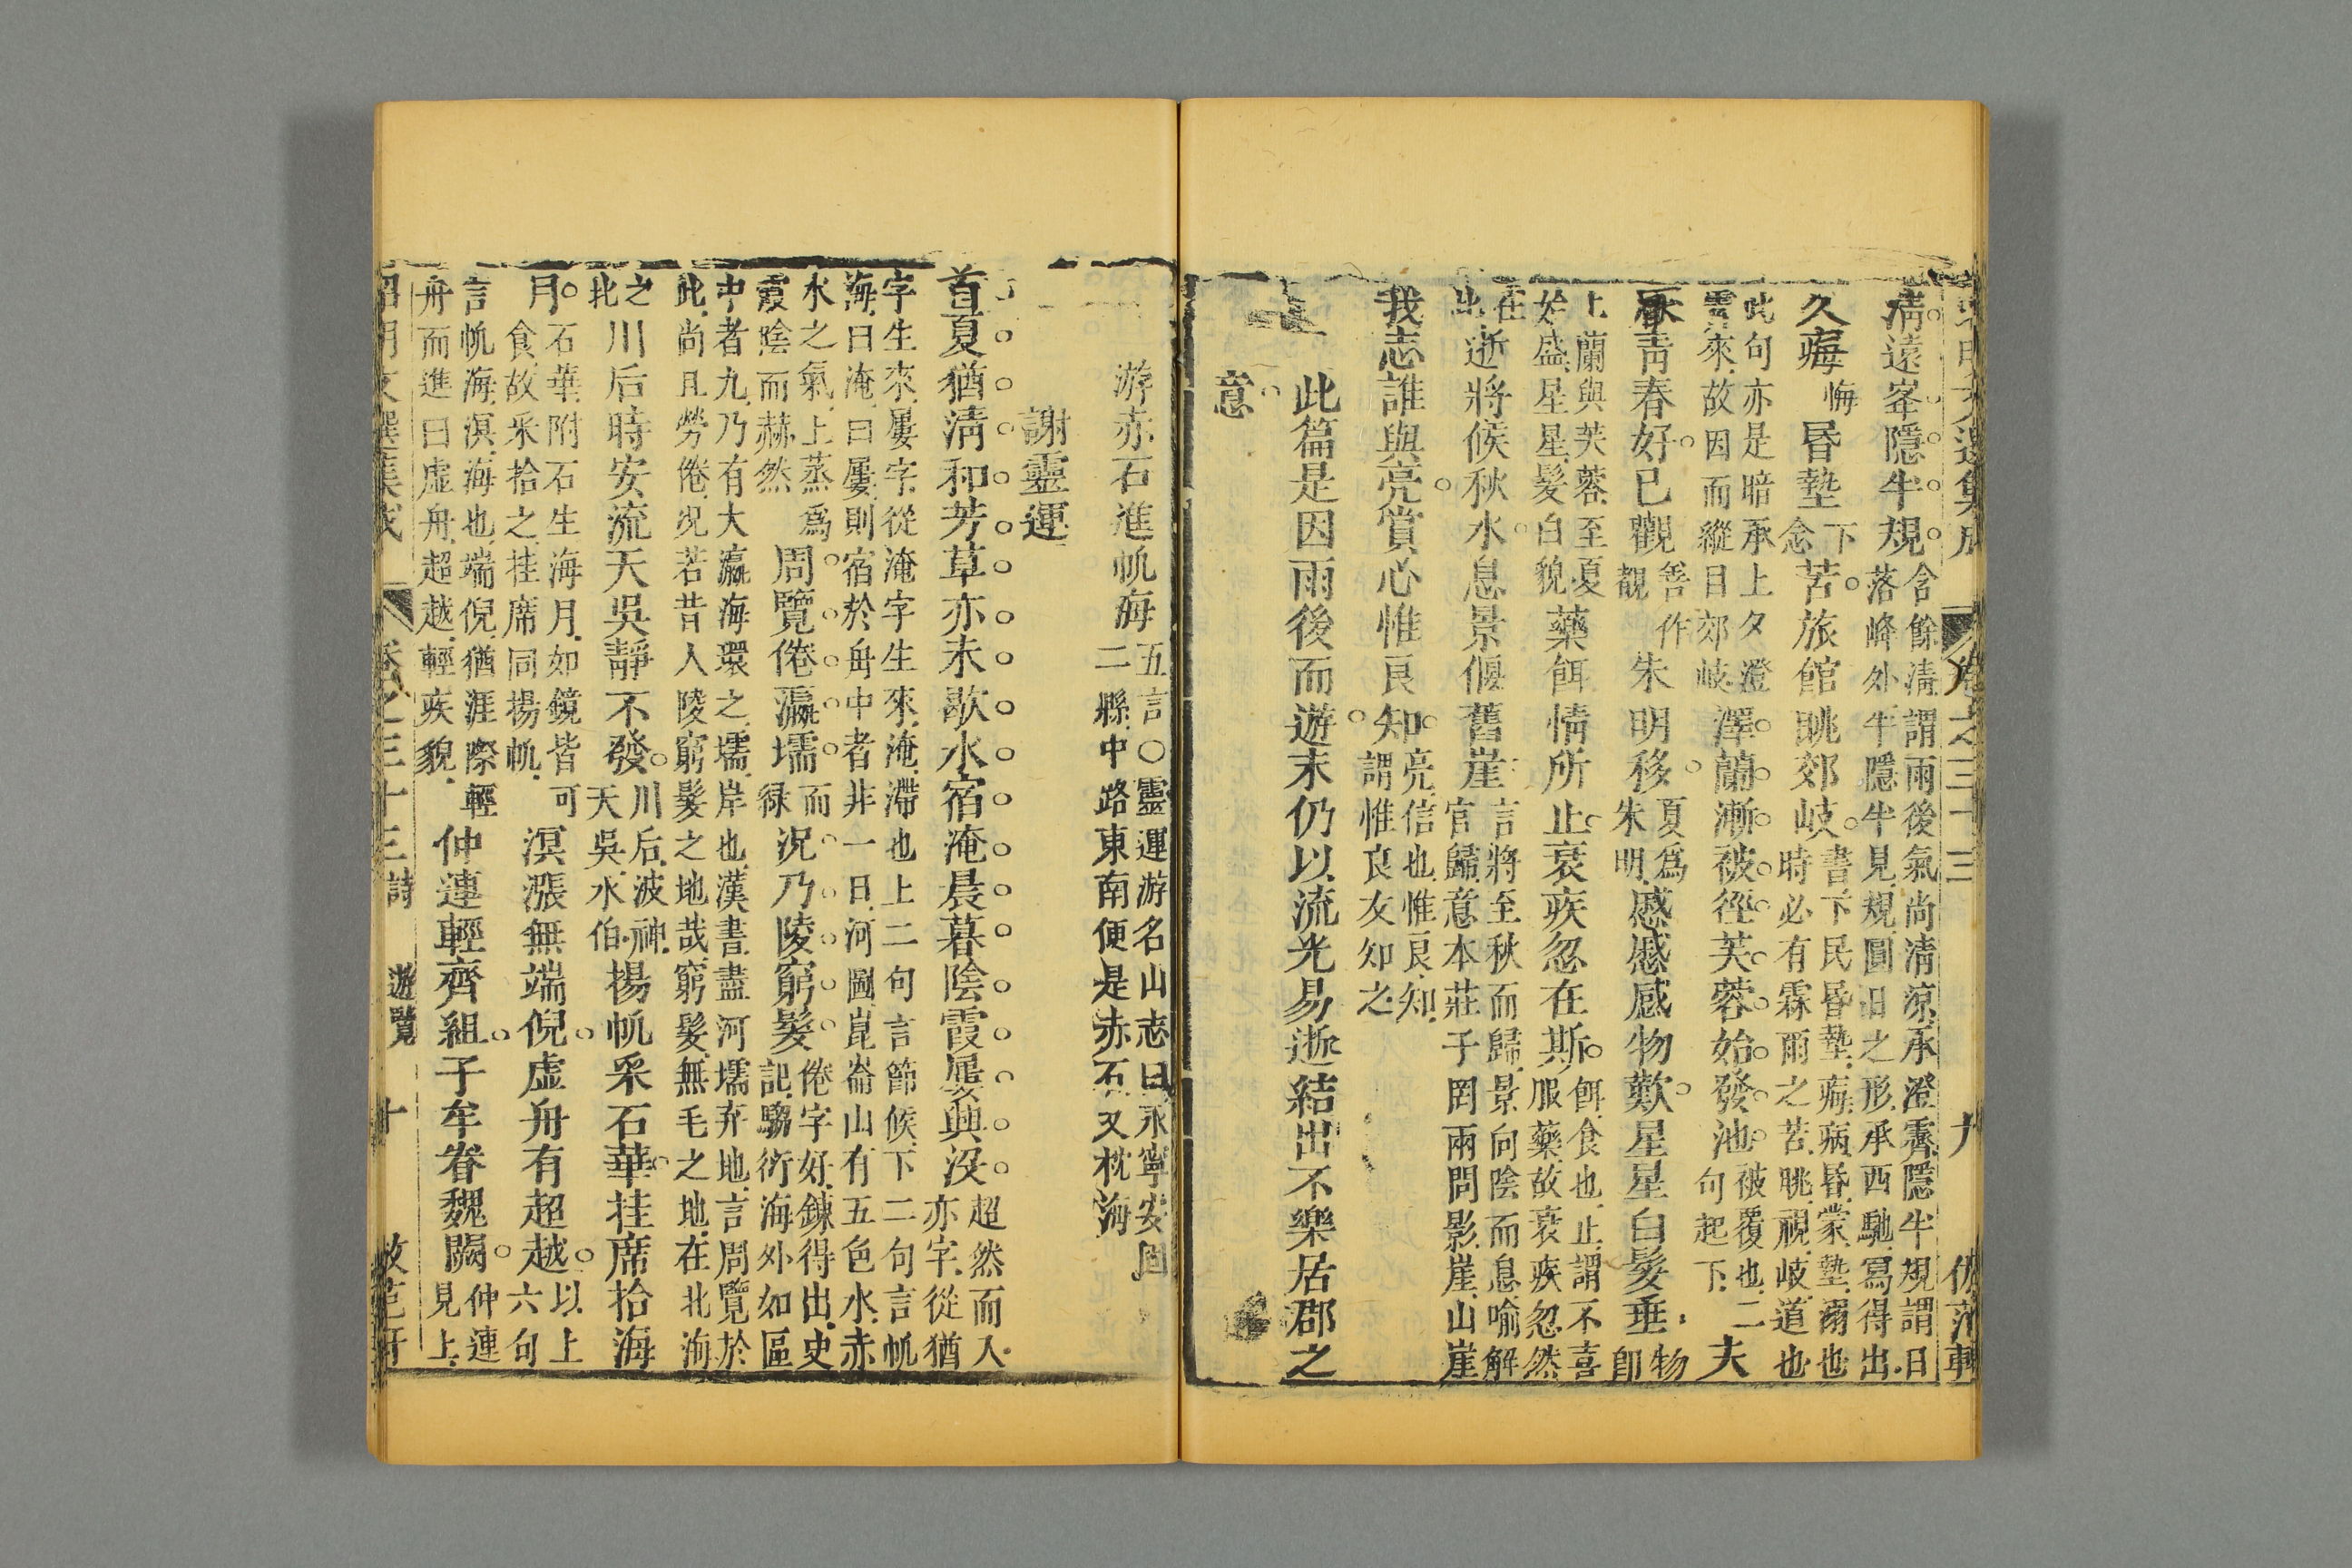 清遠峯隱半規含餘淸謂雨後氣尚清涼承澄霽隱半規謂日
落峰外半隱半見規圓日之形承西馳寫得出
久痗悔昏墊下念苦旅館眺郊岐書下民昏墊痗病昏蒙墊溺也
時必有霖雨之苦眺視岐道也
此句亦是暗承上夕澄
雲來故因而縱目郊岐澤蘭漸被徑芙蓉始發池被覆也二
句起下夫
未厭青春好已觀善作覩朱明移夏爲
朱明慼慼感物歎星星白髮垂物
卽
上蘭與芙蓉至夏
始盛星星髮白貌藥餌情所止衰疾忽在斯餌食也止謂不喜
服藥故衰疾忽然
在
此逝將候秋水息景偃舊崖言將至秋而歸景向陰而息喻解
官歸意本莊子罔兩問影崖山崖
我志誰與亮賞心惟良知亮信也惟良知
謂惟良友知之
此篇是因雨後而遊末仍以流光易逝結出不樂居郡之
意
昭明文選集成 卷之三十三 九
游赤石進帆海五言○靈運游名山志曰永寧安固
二縣中路東南便是赤石又枕海
謝靈運
首夏猶清和芳草亦未歇水宿淹晨暮陰霞屢興沒超然而入
亦字從猶
字生來屢字從淹字生來淹滯也上二句言節候下二句言帆
海曰淹曰屢則宿於舟中者非一日河圖崑崙山有五色水赤
水之氣上蒸爲
霞陰而赫然周覽倦瀛壖而
祿況乃陵窮髮倦字好鍊得出史
記騶衍海外如區
中者九乃有大瀛海環之壖岸也漢書盡河壖弃地言周覽於
此尚且勞倦況若昔人陵窮髮之地哉窮髮無毛之地在北海
之
北川后時安流天吳靜不發川后波神
天吳水伯揚帆采石華挂席拾海
月石華附石生海月如鏡皆可
食故采拾之挂席同揚帆溟漲無端倪虛舟有超越以上
六句
言帆海溟海也端倪猶涯際輕
舟而進曰虛舟超越輕疾貌仲連輕齊組子牟眷魏闕仲連
見上
昭明文選集成 卷之三十三 詩 遊覽 十